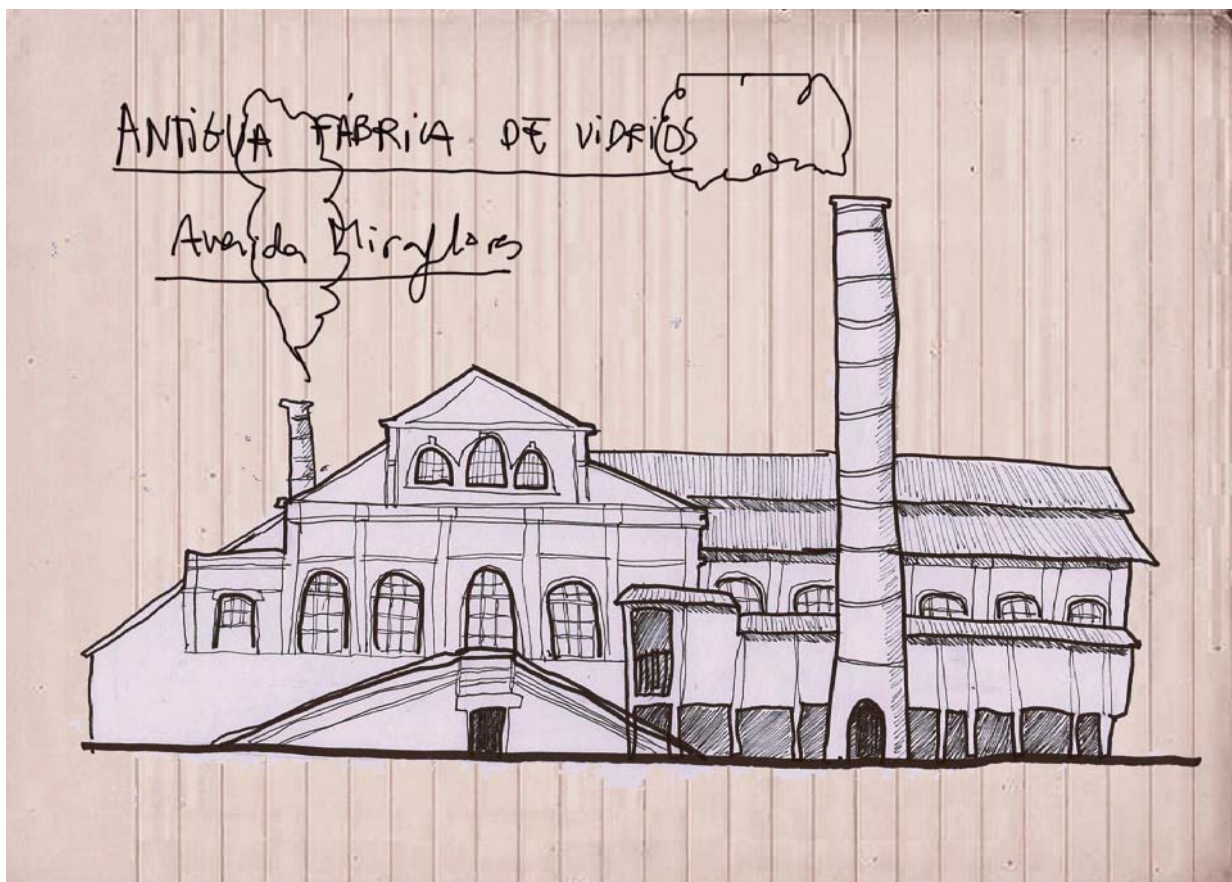 ANTIGUA FÁBRICA DE VIDRIOS
Avenida Miraflores